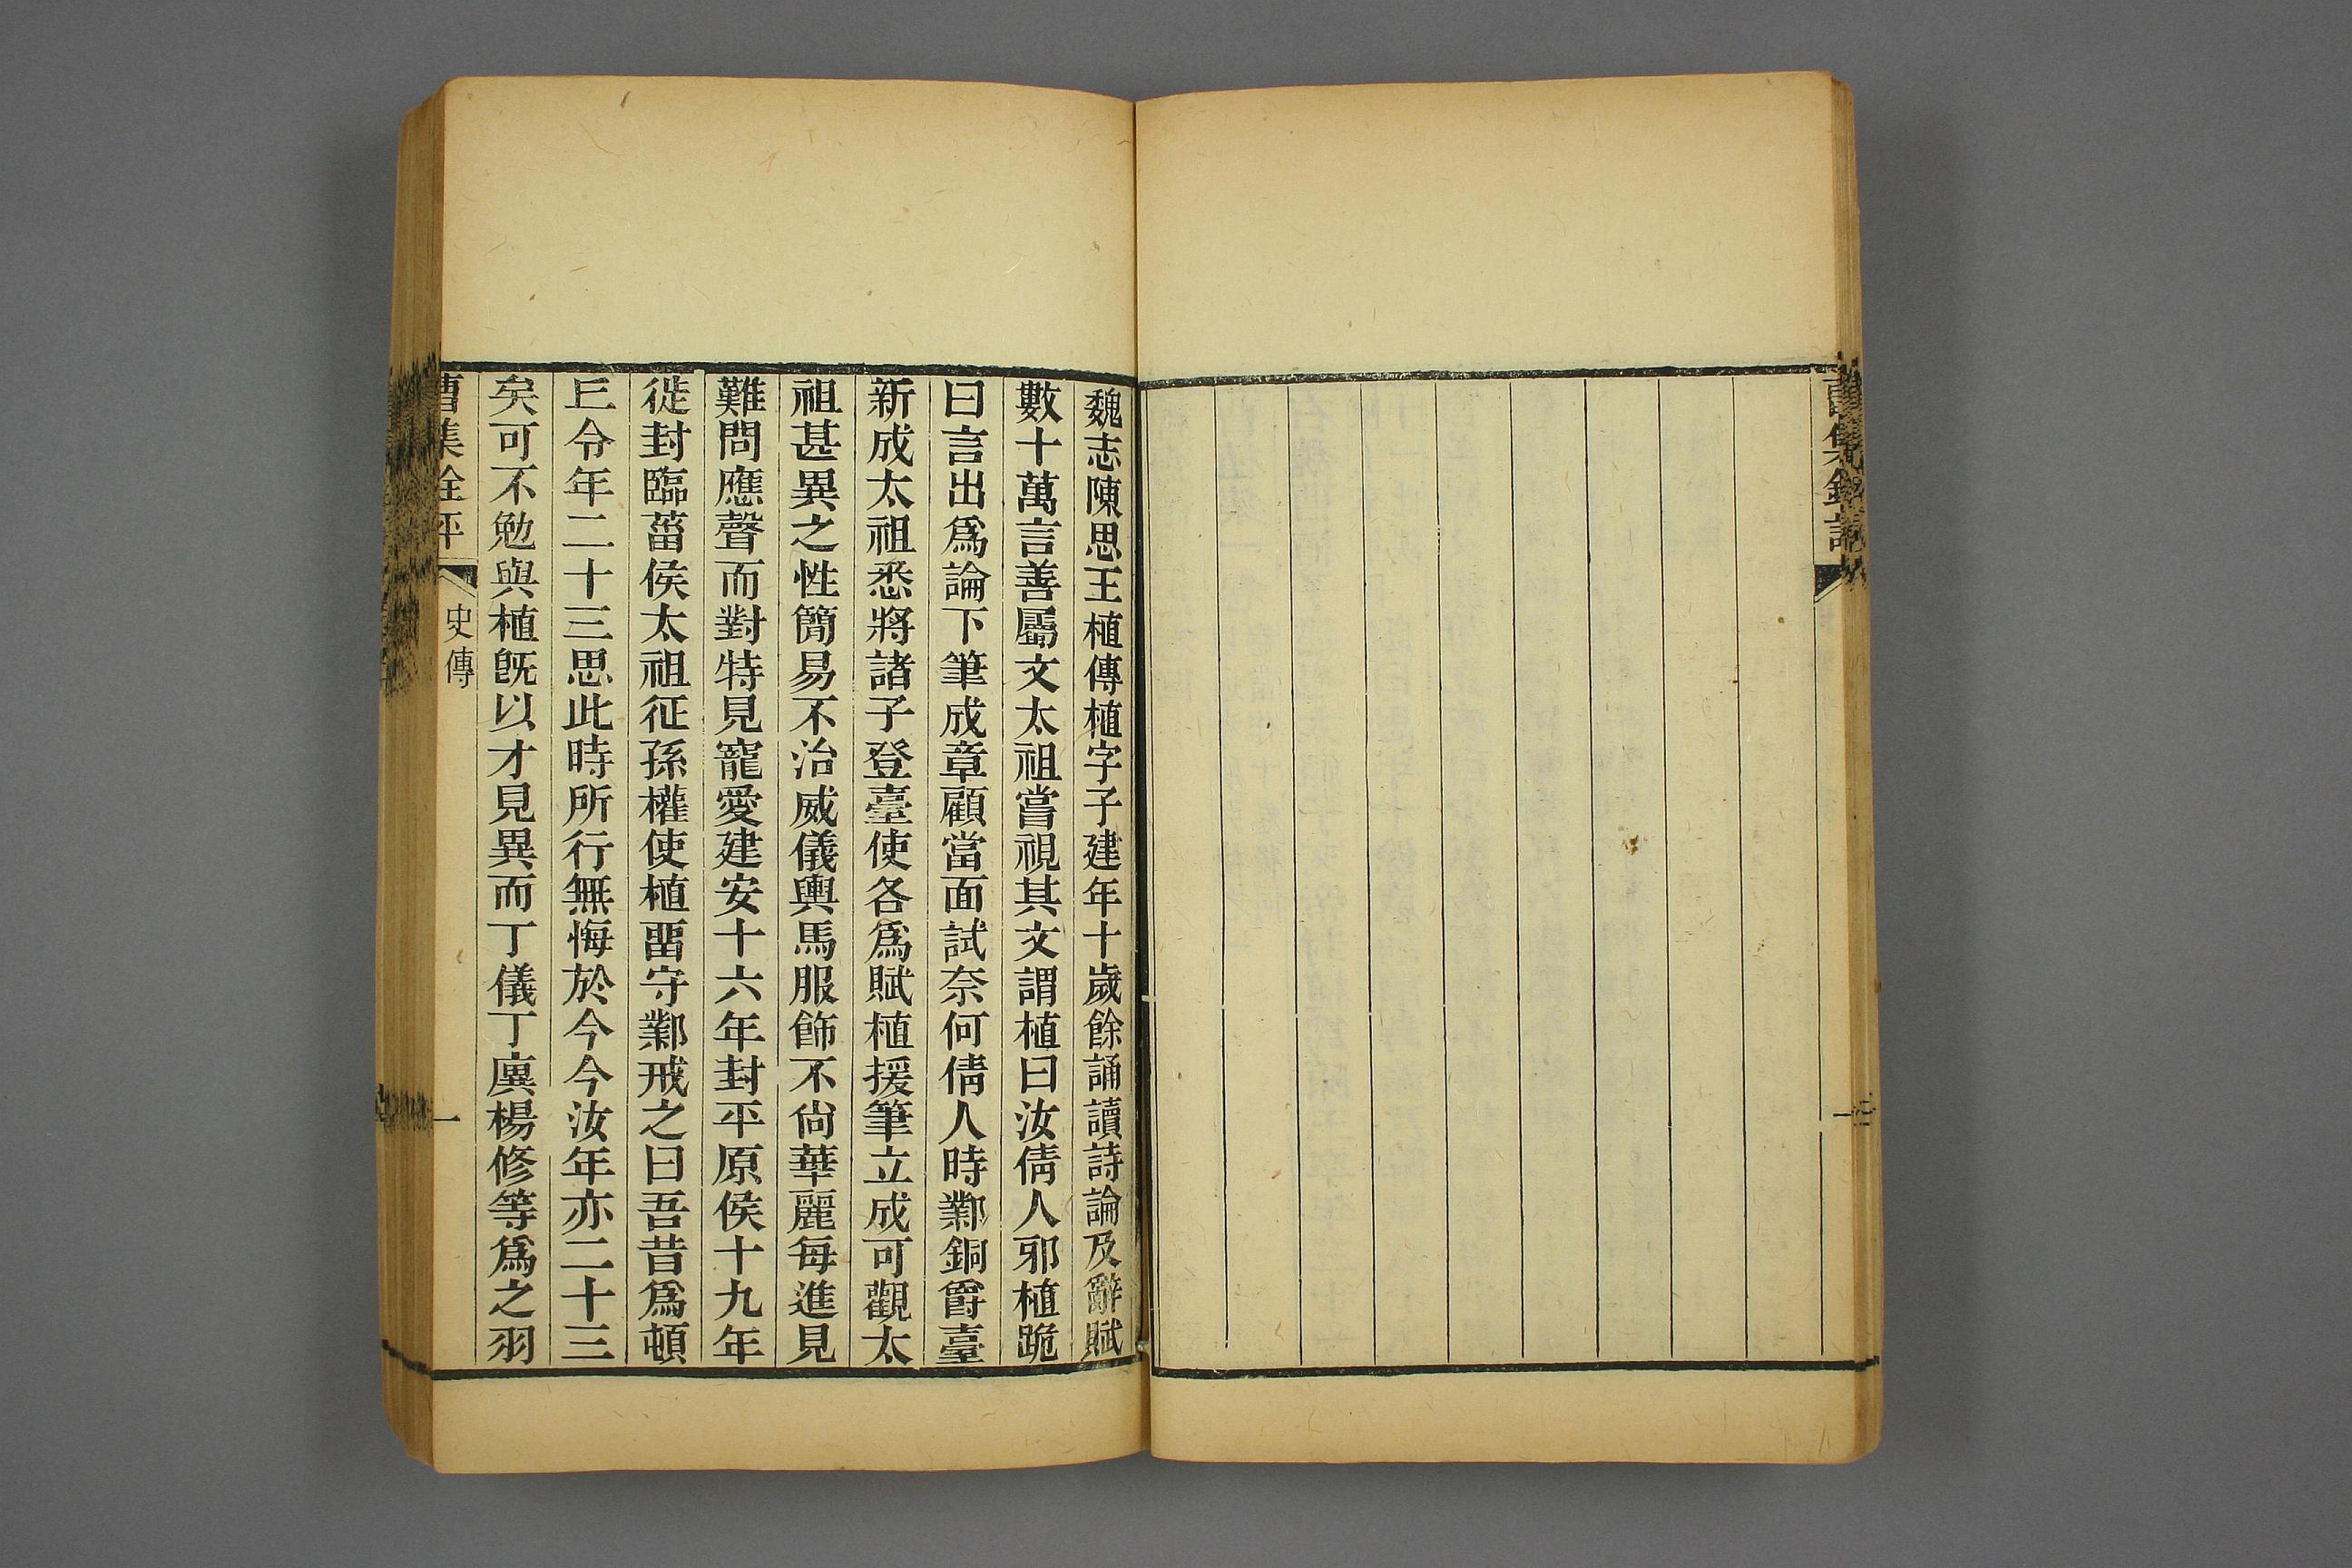 曹集銓評
魏志陳思王植傳植字子建年十歲餘誦讀詩論及辭賦
數十萬言善屬文太祖嘗視其文謂植曰汝倩人邪植跪
曰言出爲論下筆成章顧當面試奈何倩人時鄴銅爵臺
新成太祖悉將諸子登臺使各爲賦植援筆立成可觀太
祖甚異之性簡易不治威儀輿馬服飾不尙華麗每進見
難問應聲而對特見寵愛建安十六年封平原侯十九年
徙封臨菑侯太祖征孫權使植畱守鄴戒之曰吾昔爲頓
丘令年二十三思此時所行無悔於今今汝年亦二十三
矣可不勉與植旣以才見異而丁儀丁廙楊修等爲之羽
曹集銓評 史傳 一